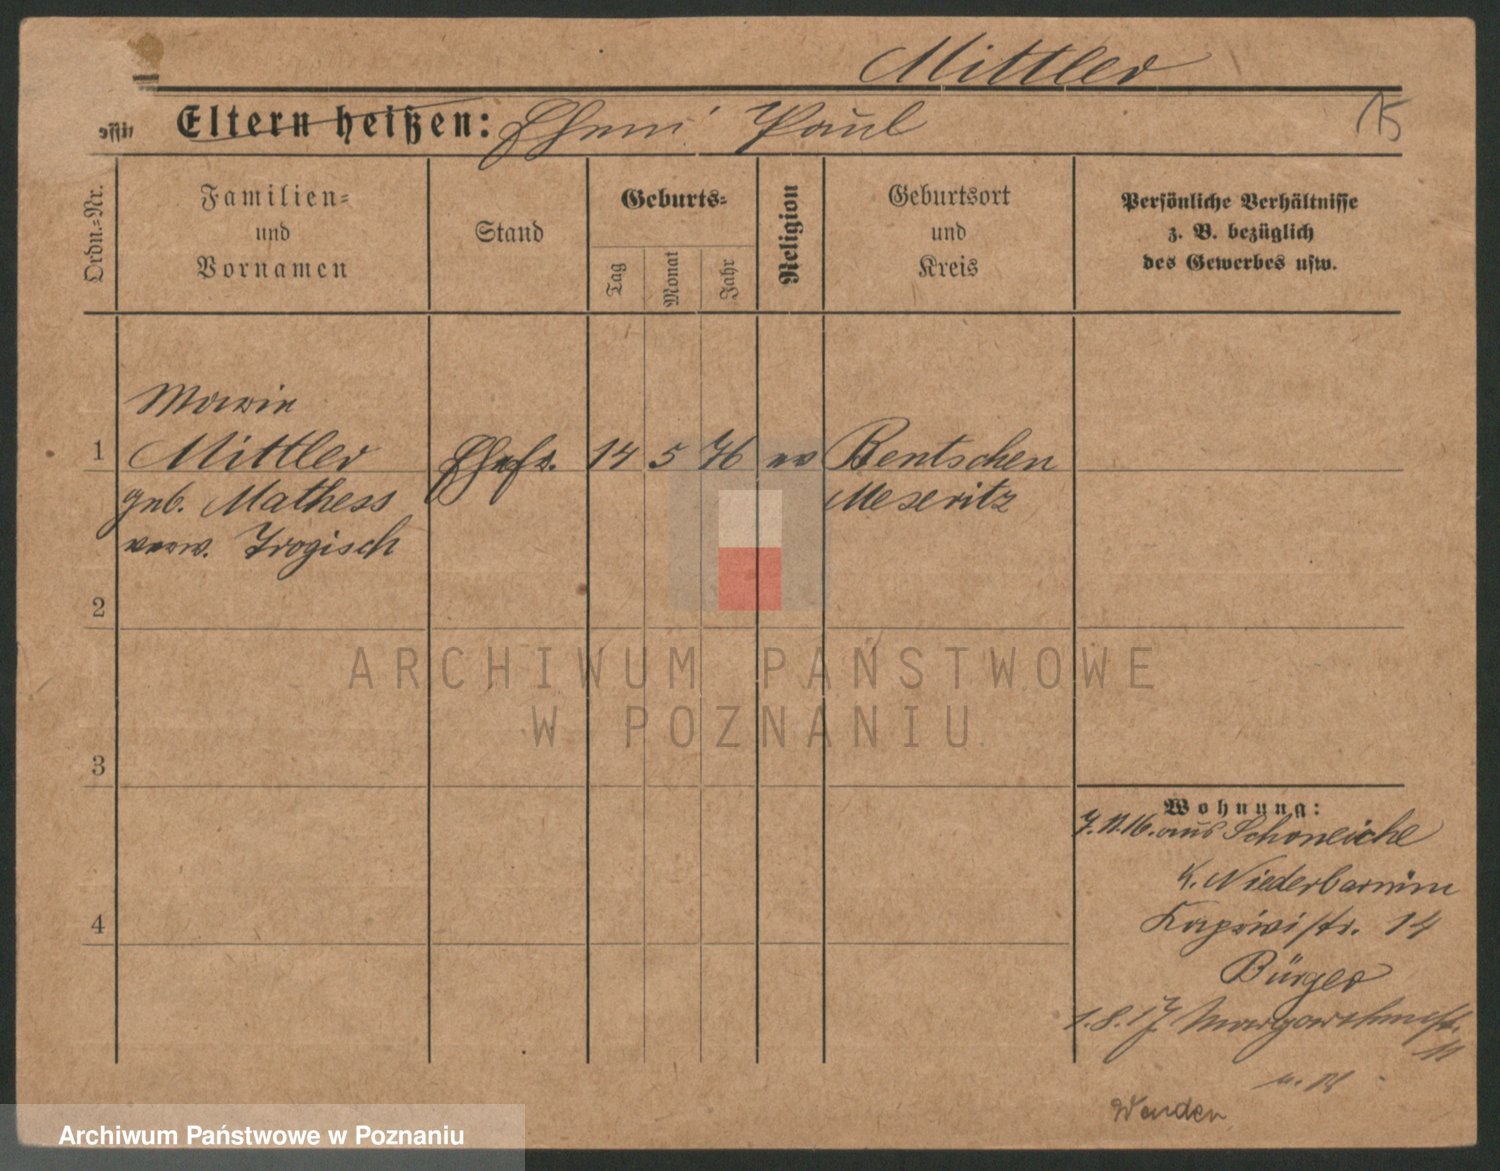 Mittler
Eltern heißen: Ehem. Paul
15
Ordn.-Nr.
Familien-
und
Vornamen
Stand
Geburts-
Tag
Monat
Jahr
Religion
Geburtsort
und
Kreis
Persönliche Verhältnisse
z. B. bezüglich
des Gewerbes usw.
Marie
1 Mittler Ehefr. 14 5 76 ev Bentschen
geb. Mathess Meseritz
verw. Trogisch
2
3
4
Wohnung:
7.11.16. aus Schöneiche
K. Niederbarnim
Kaprivistr. 14
Bürger
1.8.17 Margarethenstr.
11
Wenden
ARCHIWUM PAŃSTWOWE
W POZNANIU
Archiwum Państwowe w Poznaniu